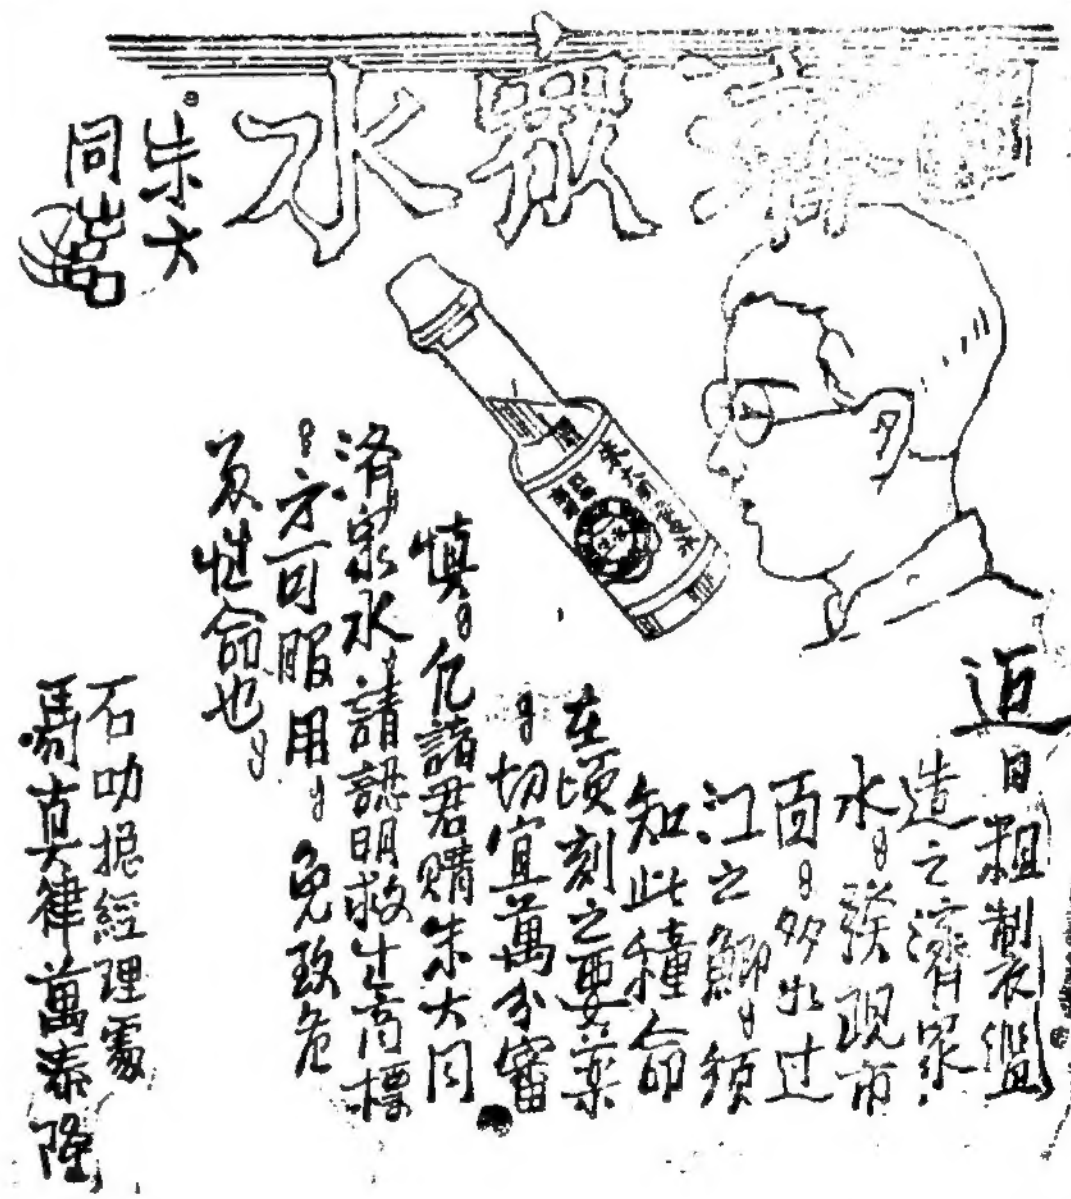 濟眾水
朱大
同喜
近
日粗制襤
造之濟眾
水。發現市
面。多如过
江之鯽。須
知此種命
在頃刻之要薬
。切宜萬分審
慎。凢諸君購朱大同
濟衆水。請認明救生商標
。方可服用。免致危
及性命也。
石叻捴經理處
馬真律萬泰隆